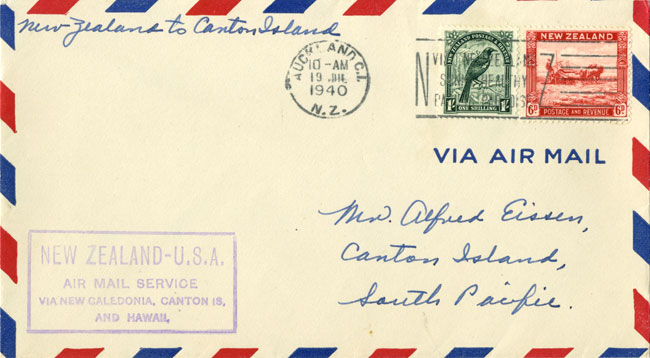 New Zealand to Canton Island
AUCKLAND C.1.
10-AM
19 JUL
1940
N.Z.
NEW ZEALAND POSTAGE & REVENUE
ONE SHILLING
1/-
NEW ZEALAND
6D
POSTAGE AND REVENUE
6D
N Z
VIA AIR MAIL
Mr. Alfred Eissen,
Canton Island,
South Pacific.
NEW ZEALAND-U.S.A.
AIR MAIL SERVICE
VIA NEW CALEDONIA, CANTON IS,
AND HAWAII,